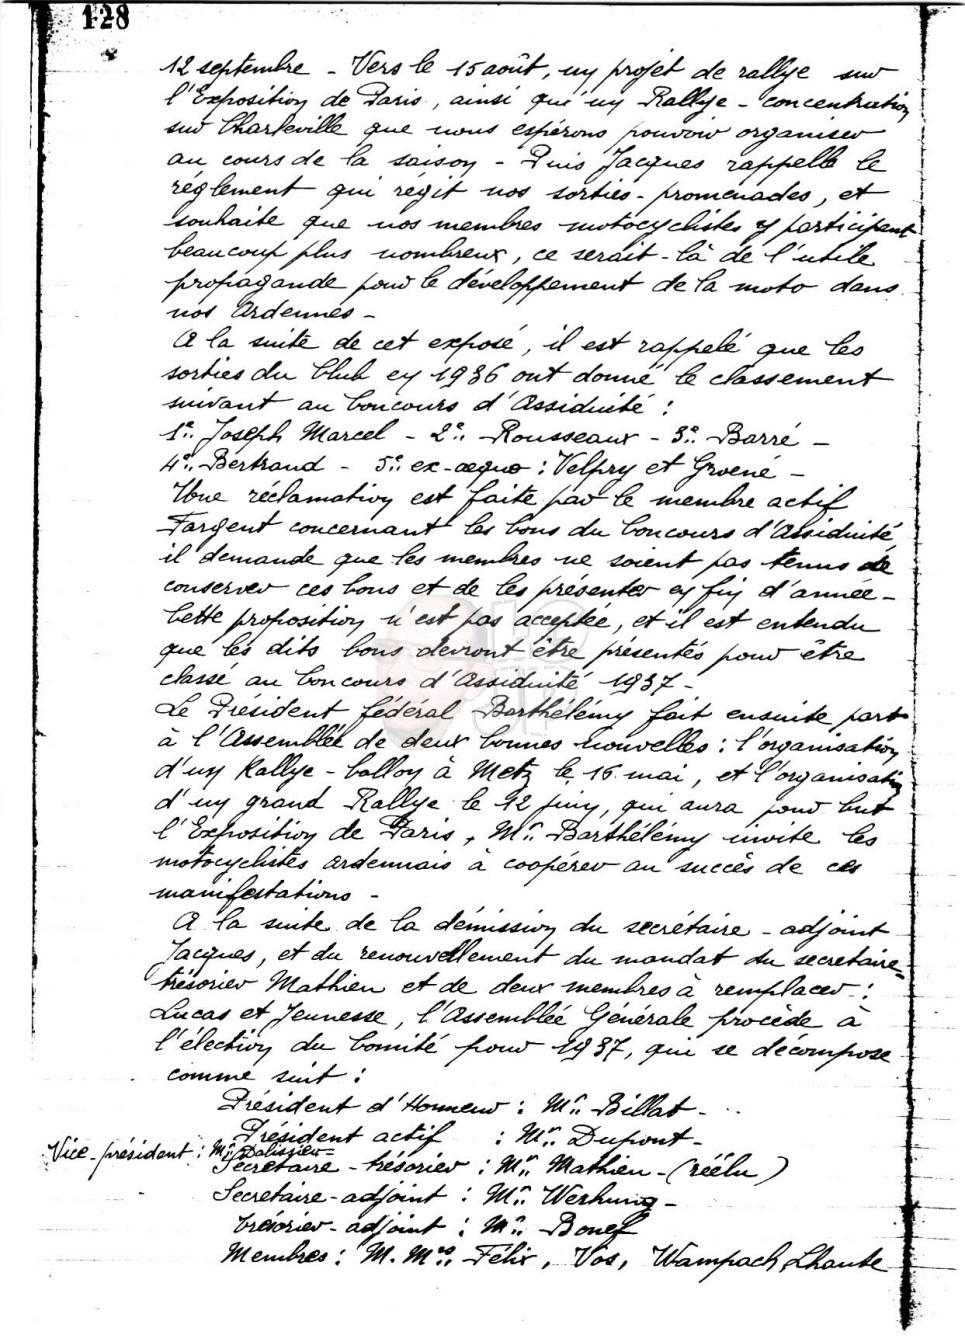 128
12 septembre - Vers le 15 août, un projet de rallye sur
l'Exposition de Paris, ainsi qu'un Rallye-concentration
sur Charleville que nous espérons pouvoir organiser
au cours de la saison - Puis Jacques rappelle le
réglement qui régit nos sorties-promenades, et
souhaite que nos membres motocyclistes y participent
beaucoup plus nombreux, ce serait-là de l'utile
propagande pour le développement de la moto dans
nos Ardennes -
A la suite de cet exposé, il est rappelé que les
sorties du Club en 1936 ont donné le classement
suivant au Concours d'Assiduité :
1er Joseph Marcel - 2e Rousseaux - 3e Barré -
4e Bertrand - 5e ex-æquo : Velpry et Groené -
Une réclamation est faite par le membre actif
Fargent concernant les bons du Concours d'Assiduité
il demande que les membres ne soient pas tenus de
conserver ces bons et de les présenter en fin d'année -
Cette proposition n'est pas acceptée, et il est entendu
que les dits bons devront être présentés pour être
classé au Concours d'Assiduité 1937 -
Le Président fédéral Barthélémy fait ensuite part
à l'Assemblée de deux bonnes nouvelles : l'organisation
d'un Rallye-ballon à Metz le 16 mai, et l'organisation
d'un grand Rallye le 12 juin, qui aura pour but
l'Exposition de Paris, Mr Barthélémy invite les
motocyclistes ardennais à coopérer au succès de ces
manifestations -
A la suite de la démission du secrétaire-adjoint
Jacques, et du renouvellement du mandat du secretaire-
trésorier Mathieu et de deux membres à remplacer :
Lucas et Jeunesse, l'Assemblée Générale procède à
l'élection du Comité pour 1937, qui se décompose
comme suit :
Président d'Honneur : Mr Billat -
Président actif : Mr Dupont -
Vice-président : Mr Dalissier -
Secretaire-trésorier : Mr Mathieu - (réélu)
Secretaire-adjoint : Mr Werhung -
trésorier-adjoint : Mr Bonef
Membres : M.Mrs Félix, Vos, Wampach, Lhaute